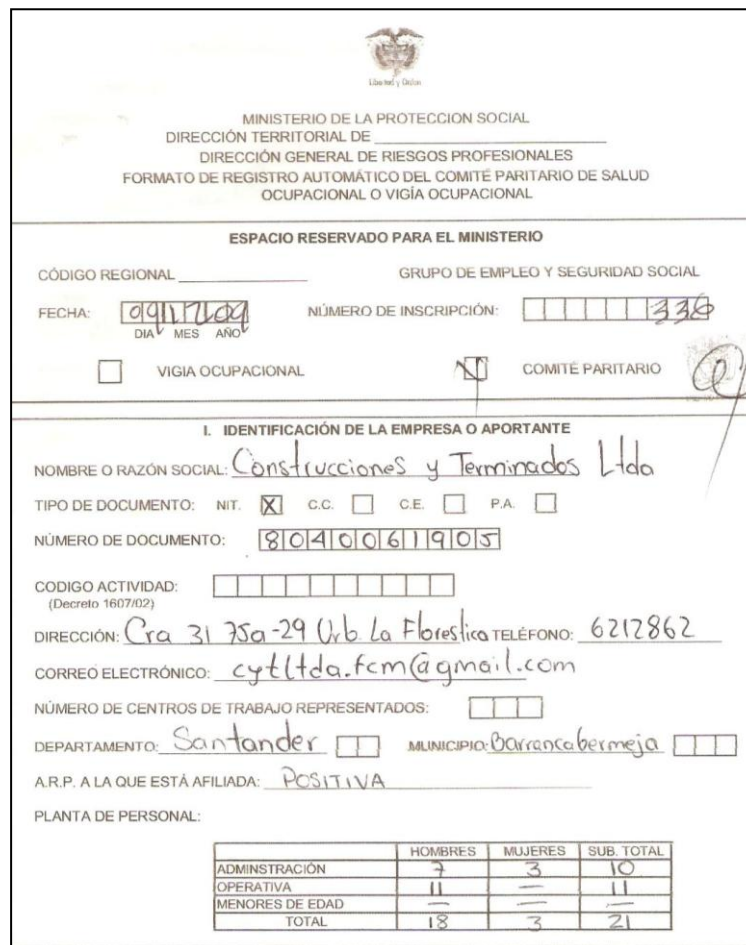 Libertad y Orden
MINISTERIO DE LA PROTECCION SOCIAL
DIRECCIÓN TERRITORIAL DE
DIRECCIÓN GENERAL DE RIESGOS PROFESIONALES
FORMATO DE REGISTRO AUTOMÁTICO DEL COMITÉ PARITARIO DE SALUD
OCUPACIONAL O VIGÍA OCUPACIONAL
ESPACIO RESERVADO PARA EL MINISTERIO
CÓDIGO REGIONAL GRUPO DE EMPLEO Y SEGURIDAD SOCIAL
FECHA: 09 12 09 NÚMERO DE INSCRIPCIÓN: 336
DIA MES AÑO
VIGIA OCUPACIONAL COMITÉ PARITARIO
I. IDENTIFICACIÓN DE LA EMPRESA O APORTANTE
NOMBRE O RAZÓN SOCIAL: Construcciones y Terminados Ltda
TIPO DE DOCUMENTO: NIT. X C.C. C.E. P.A.
NÚMERO DE DOCUMENTO: 8040061905
CODIGO ACTIVIDAD:
(Decreto 1607/02)
DIRECCIÓN: Cra 31 75a-29 Urb La Florestica TELÉFONO: 6212862
CORREO ELECTRÓNICO: cytltda.fcm@gmail.com
NÚMERO DE CENTROS DE TRABAJO REPRESENTADOS:
DEPARTAMENTO: Santander MUNICIPIO: Barrancabermeja
A.R.P. A LA QUE ESTÁ AFILIADA: POSITIVA
PLANTA DE PERSONAL:
HOMBRES MUJERES SUB. TOTAL
ADMINSTRACIÓN 7 3 10
OPERATIVA 11 — 11
MENORES DE EDAD — — —
TOTAL 18 3 21